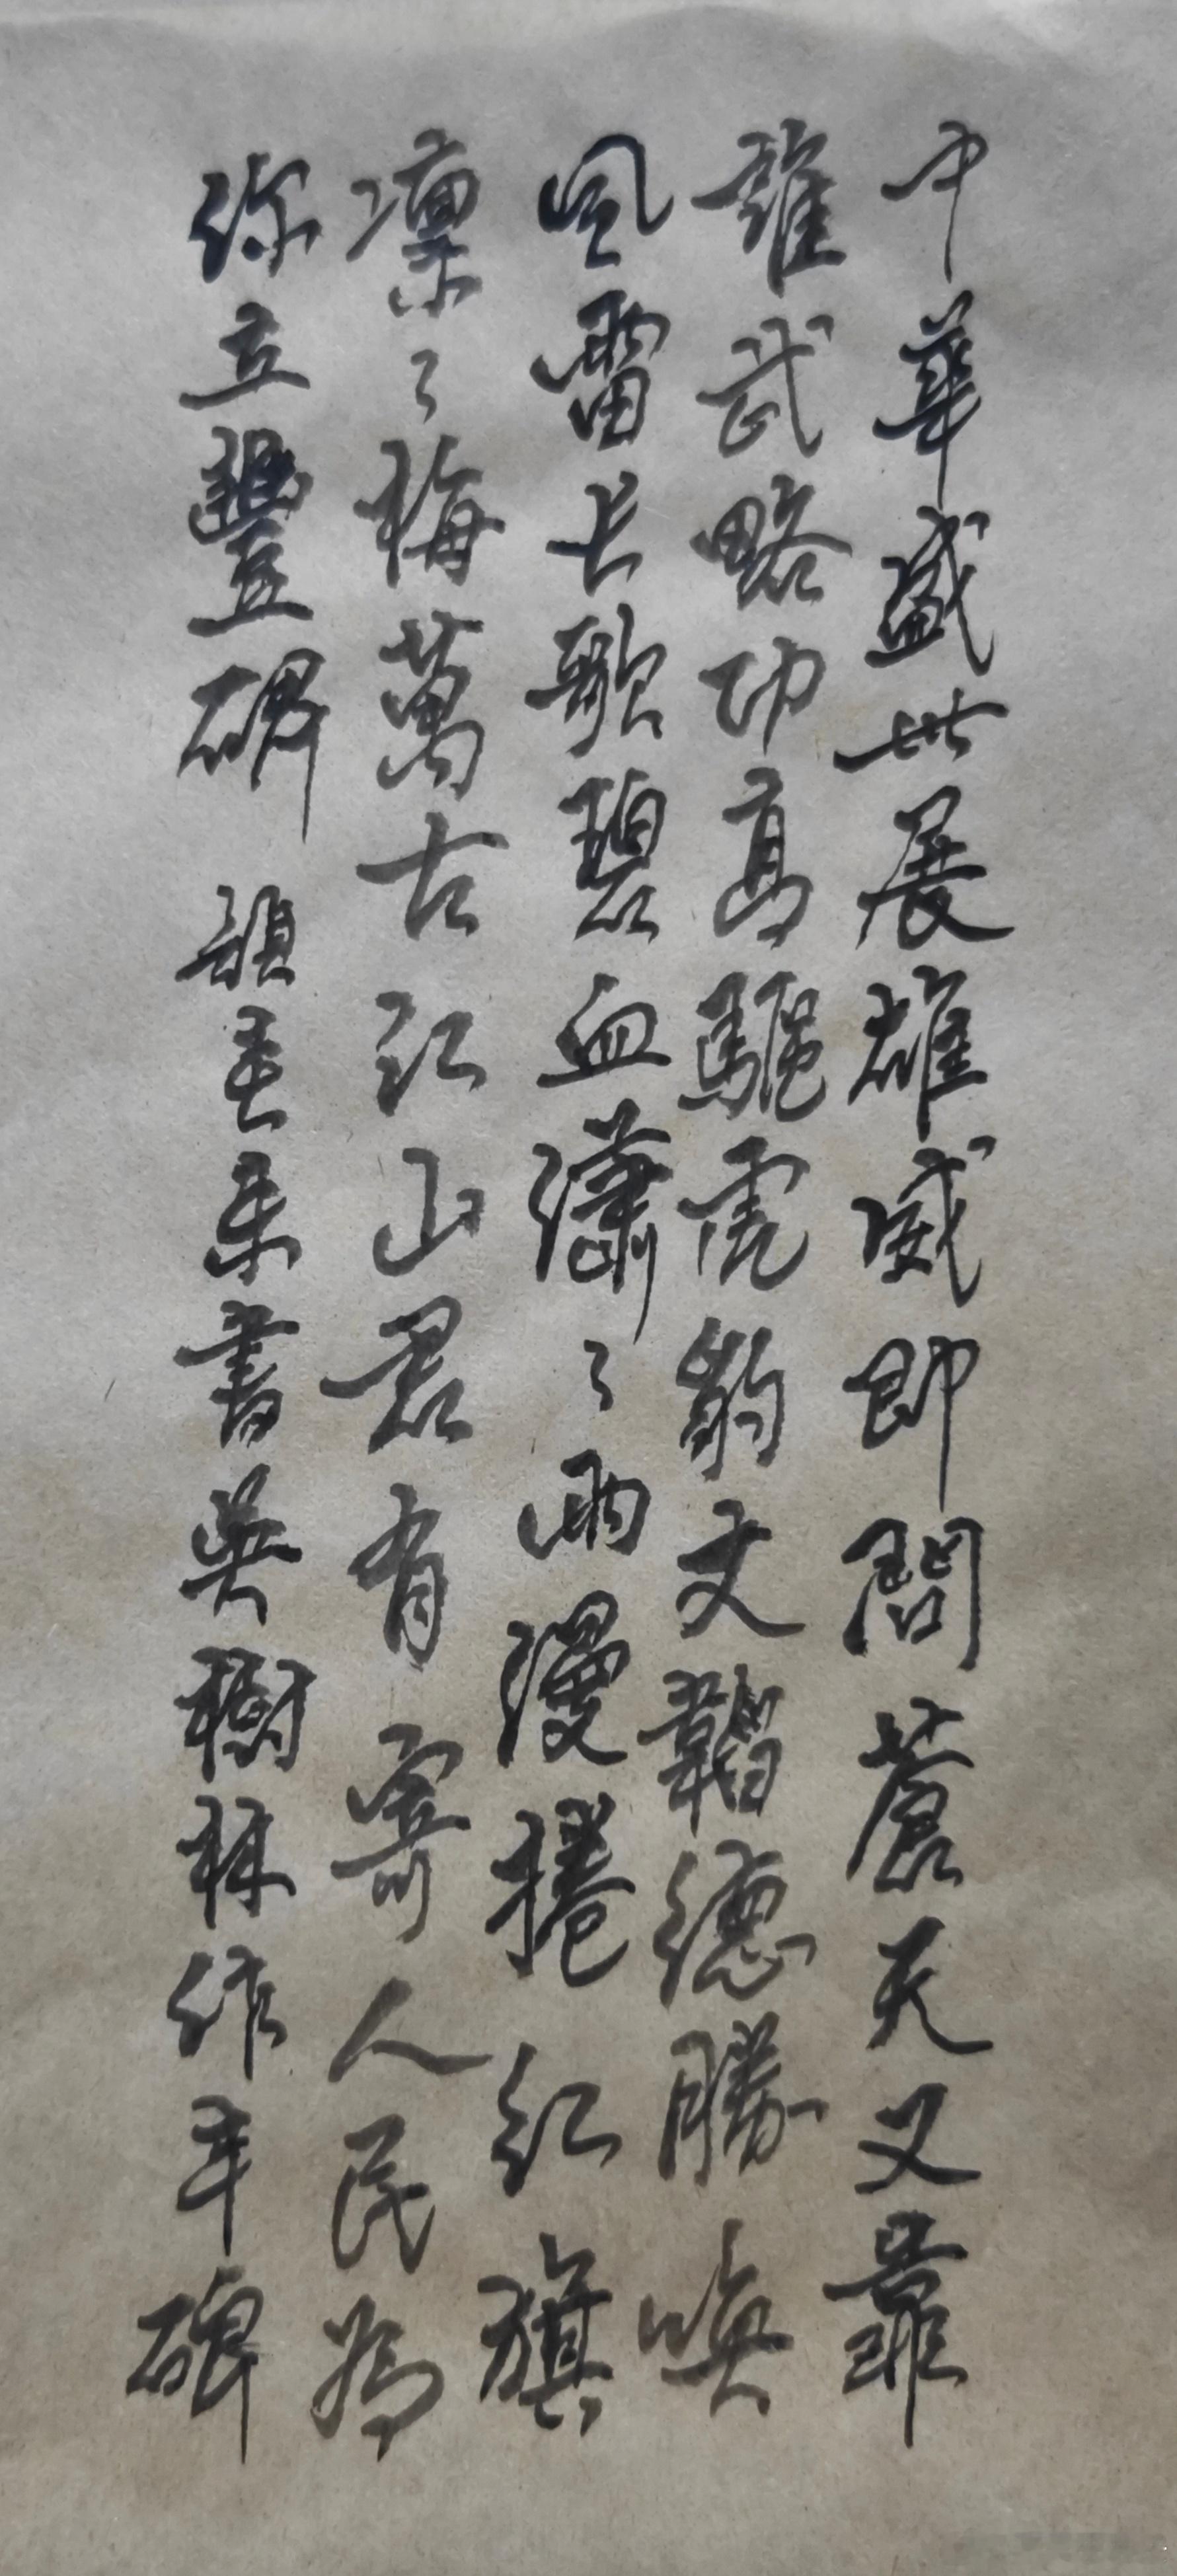 中華盛世展雄威即問蒼天又靠
誰武略功高驅虎豹文韜德勝喚
風雷長歌碧血瀟々雨漫捲紅旗
凜々梅萬古江山君有寄人民為
你立豐碑 韻書吳樹林作年碑